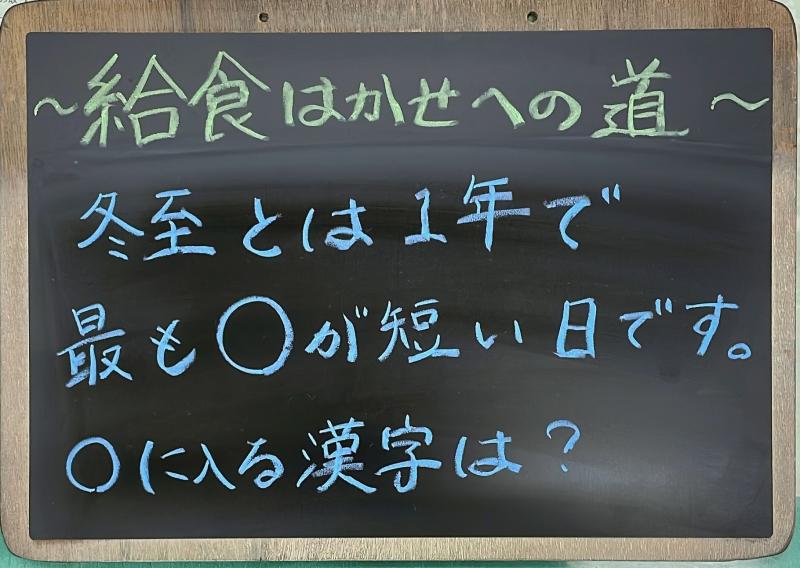 ～給食はかせへの道～
冬至とは1年で
最も○が短い日です。
○に入る漢字は？